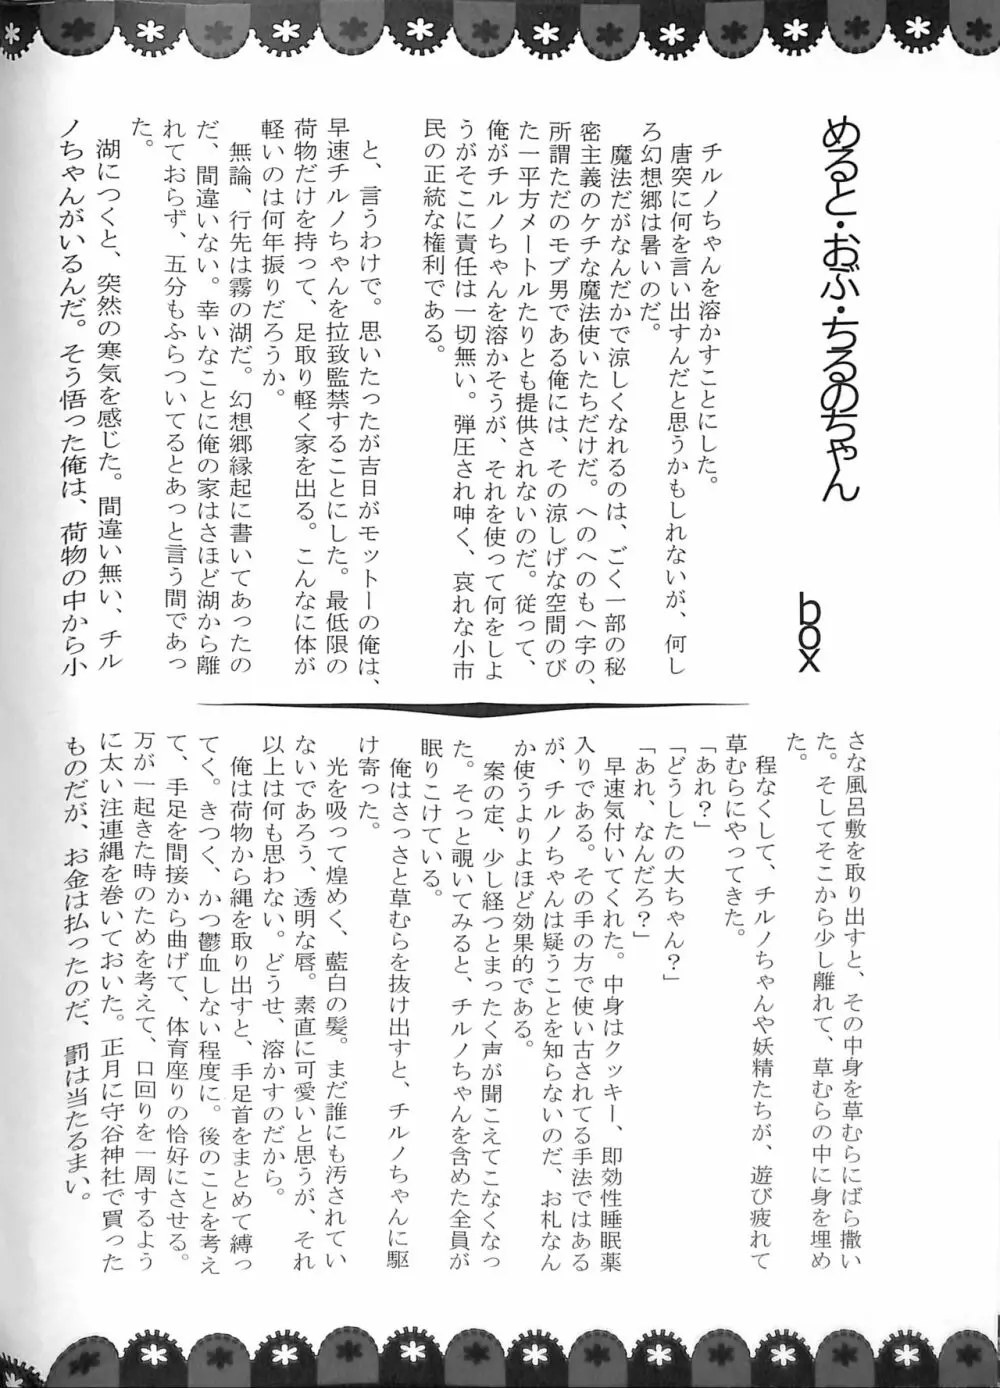 めると・おぶ・ちるのちゃん
box
チルノちゃんを溶かすことにした。
唐突に何を言い出すんだと思うかもしれないが、何し
ろ幻想郷は暑いのだ。
魔法だがなんだかで涼しくなれるのは、ごく一部の秘
密主義のケチな魔法使いたちだけだ。へのへのもへ字の、
所謂ただのモブ男である俺には、その涼しげな空間のび
た一平方メートルたりとも提供されないのだ。従って、
俺がチルノちゃんを溶かそうが、それを使って何をしよ
うがそこに責任は一切無い。弾圧され呻く、哀れな小市
民の正統な権利である。
と、言うわけで。思いたったが吉日がモットーの俺は、
早速チルノちゃんを拉致監禁することにした。最低限の
荷物だけを持って、足取り軽く家を出る。こんなに体が
軽いのは何年振りだろうか。
無論、行先は霧の湖だ。幻想郷縁起に書いてあったの
だ、間違いない。幸いなことに俺の家はさほど湖から離
れておらず、五分もふらついてるとあっと言う間であっ
た。
湖につくと、突然の寒気を感じた。間違い無い、チル
ノちゃんがいるんだ。そう悟った俺は、荷物の中から小
さな風呂敷を取り出すと、その中身を草むらにばら撒い
た。そしてそこから少し離れて、草むらの中に身を埋め
た。
程なくして、チルノちゃんや妖精たちが、遊び疲れて
草むらにやってきた。
「あれ？」
「どうしたの大ちゃん？」
「あれ、なんだろ？」
早速気付いてくれた。中身はクッキー、即効性睡眠薬
入りである。その手の方で使い古されてる手法ではある
が、チルノちゃんは疑うことを知らないのだ、お札なん
か使うよりよほど効果的である。
案の定、少し経つとまったく声が聞こえてこなくなっ
た。そっと覗いてみると、チルノちゃんを含めた全員が
眠りこけている。
俺はさっさと草むらを抜け出すと、チルノちゃんに駆
け寄った。
光を吸って煌めく、藍白の髪。まだ誰にも汚されてい
ないであろう、透明な唇。素直に可愛いと思うが、それ
以上は何も思わない。どうせ、溶かすのだから。
俺は荷物から縄を取り出すと、手足首をまとめて縛っ
てく。きつく、かつ鬱血しない程度に。後のことを考え
て、手足を間接から曲げて、体育座りの恰好にさせる。
万が一起きた時のためを考えて、口回りを一周するよう
に太い注連縄を巻いておいた。正月に守谷神社で買った
ものだが、お金は払ったのだ、罰は当たるまい。